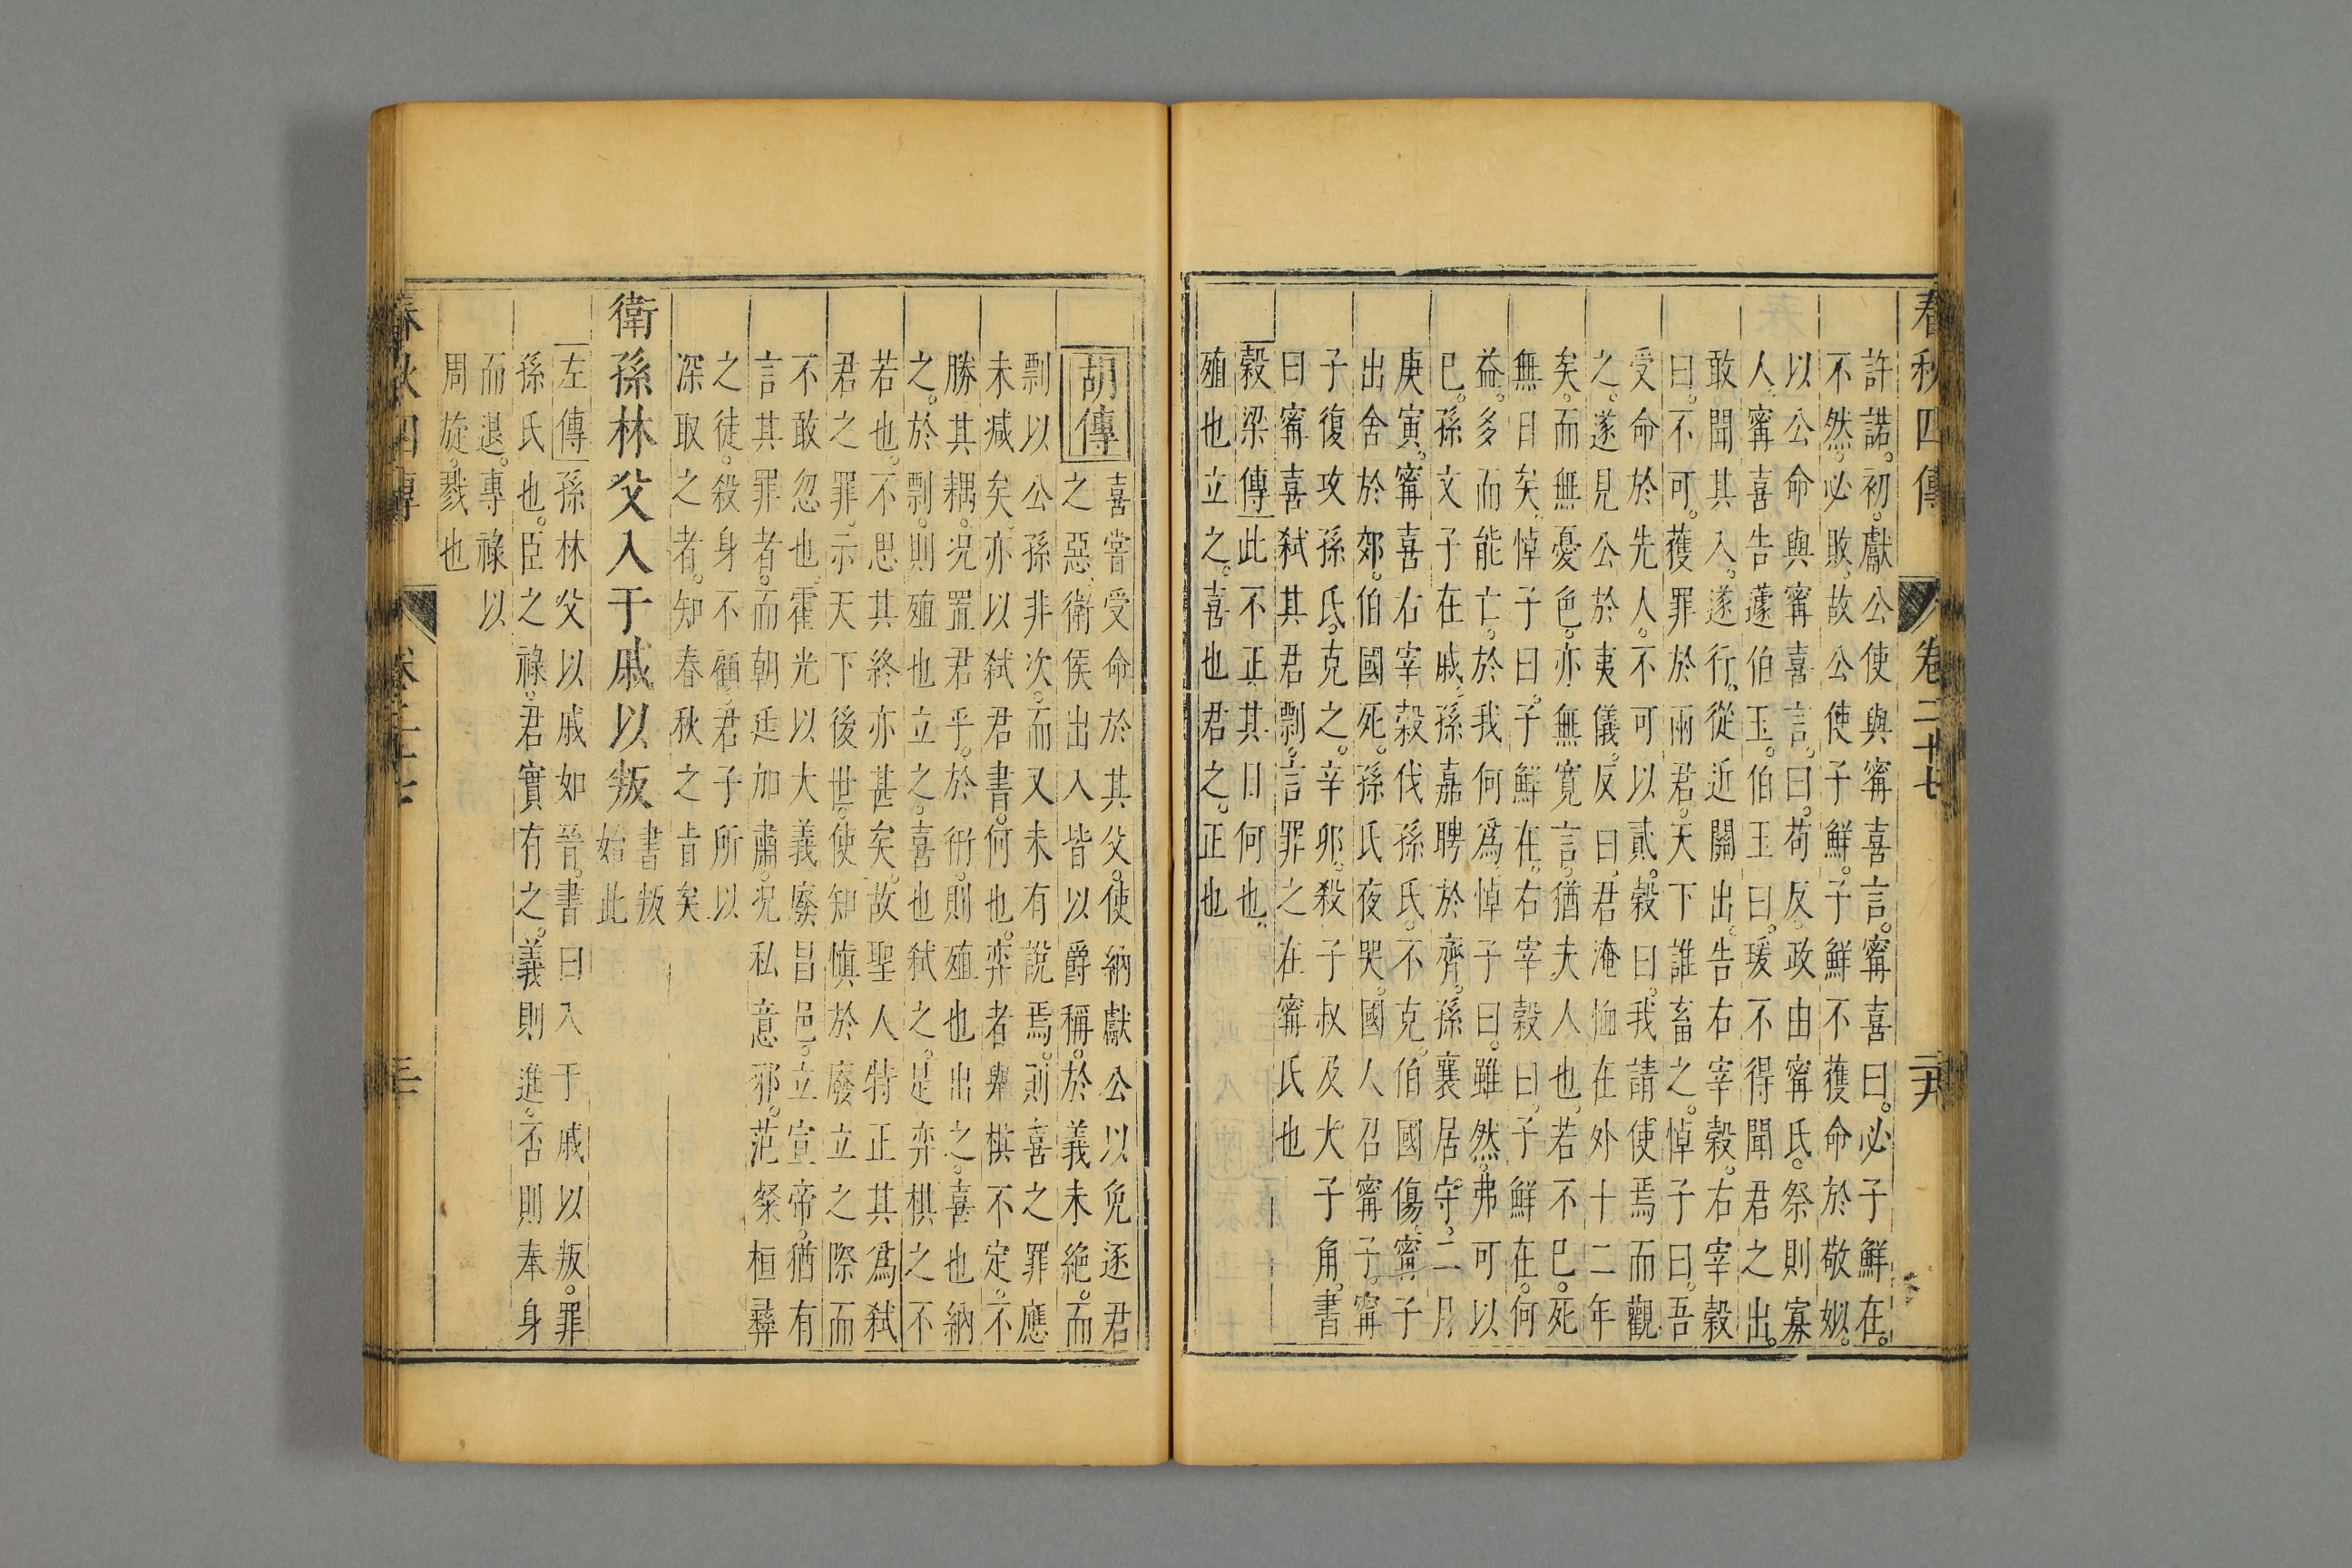 春秋四傳 卷二十七 二十九
許諾。初。獻公使與甯喜言。甯喜曰。必子鮮在。
不然。必敗。故公使子鮮。子鮮不獲命於敬姒。
以公命與甯喜言。曰。苟反。政由甯氏。祭則寡
人。甯喜告蘧伯玉。伯玉曰。瑗不得聞君之出。
敢聞其入。遂行。從近關出。告右宰穀。右宰穀
曰。不可。獲罪於兩君。天下誰畜之。悼子曰。吾
受命於先人。不可以貳。穀曰。我請使焉而觀
之。遂見公於夷儀。反曰。君淹恤在外十二年
矣。而無憂色。亦無寬言。猶夫人也。若不已。死
無日矣。悼子曰。子鮮在。右宰穀曰。子鮮在。何
益。多而能亡。於我何為。悼子曰。雖然。弗可以
已。孫文子在戚。孫嘉聘於齊。孫襄居守。二月
庚寅。甯喜右宰穀伐孫氏。不克。伯國傷。甯子
出舍於郊。伯國死。孫氏夜哭。國人召甯子。甯
子復攻孫氏。克之。辛卯。殺子叔及大子角。書
曰甯喜弒其君剽。言罪之在甯氏也
穀梁傳此不正其日何也。
殖也立之。喜也君之。正也
胡傳喜嘗受命於其父。使納獻公以免逐君
之惡。衛侯出入皆以爵稱。於義未絕。而
剽以公孫非次。而又未有說焉。則喜之罪應
未減矣。亦以弒君書。何也。弈者舉棋不定。不
勝其耦。況置君乎。於衎。則殖也出之。喜也納
之。於剽。則殖也立之。喜也弒之。是弈棋之不
若也。不思其終亦甚矣。故聖人特正其為弒
君之罪。示天下後世。使知慎於廢立之際而
不敢忽也。霍光以大義廢昌邑。立宣帝。猶有
言其罪者。而朝廷加肅。況私意邪。范粲桓彞
之徒。殺身不顧。君子所以
深取之者。知春秋之㫖矣
衛孫林父入于戚以叛 書叛
始此
左傳孫林父以戚如晉。書曰入于戚以叛。罪
孫氏也。臣之祿。君實有之。義則進。否則奉身
而退。專祿以
周旋。戮也
春秋四傳 卷二十七 三十